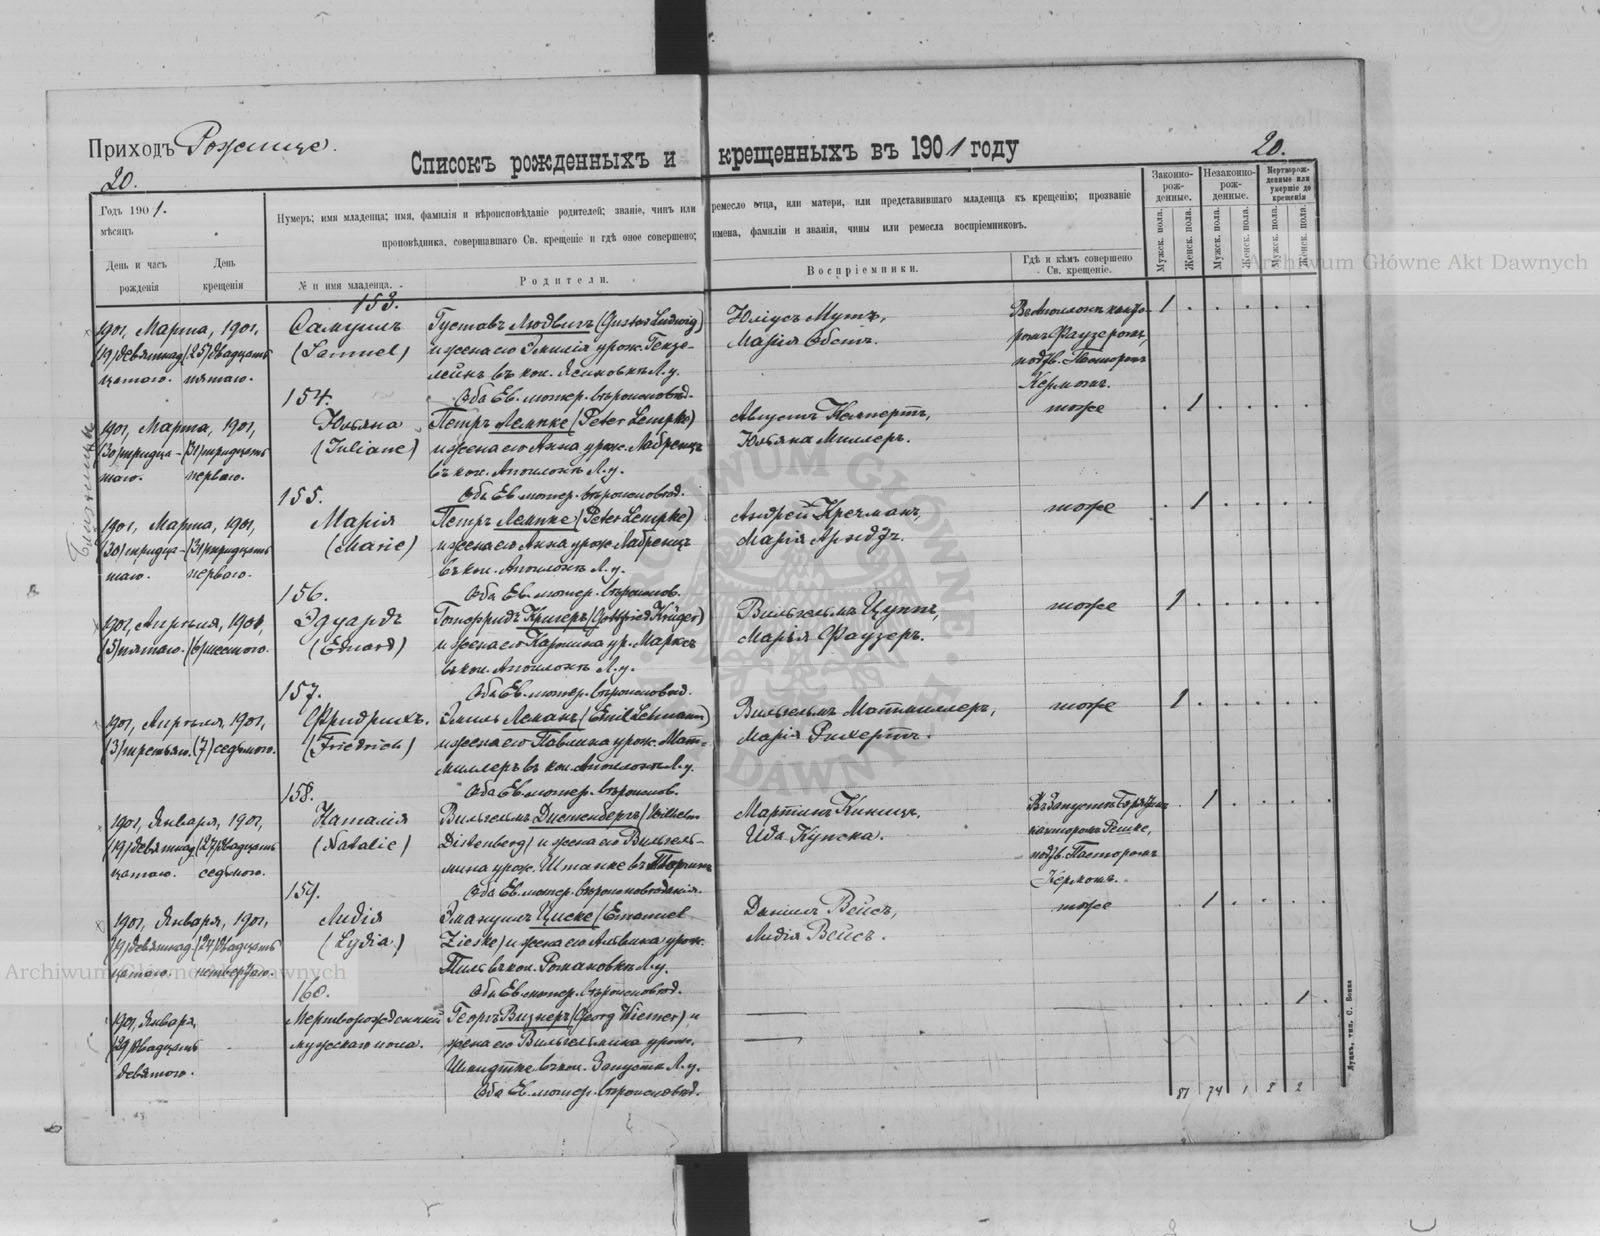 Приходъ Рожище.
Списокъ рожденныхъ и крещенныхъ въ 1901 году
20.
20.
Годъ 1901.
мѣсяцъ
День и часъ рожденія
День крещенія
Нумеръ; имя младенца; имя, фамилія и вѣроисповѣданіе родителей; званіе, чинъ или ремесло отца, или матери, или представившаго младенца къ крещенію; прозваніе
проповѣдника, совершавшаго Св. крещеніе и гдѣ оное совершено; имена, фамиліи и званія, чины или ремесла воспріемниковъ.
№ и имя младенца.
Родители.
Воспріемники.
Гдѣ и кѣмъ совершено Св. крещеніе.
Законно-рож-денные.
Незаконно-рож-денные.
Мертворож-денные или умершіе до крещенія
Мужск. пола.
Женск. пола.
Мужск. пола.
Женск. пола.
Мужск. пола.
Женск. пола.
153.
1901, Марта, 1901,
(19) девятнад (25) двадцать
цатаго. пятаго.
Самуилъ
(Samuel)
Густавъ Людвигъ (Gustav Ludwig)
и жена его Эмилія урож. Гензе-
лейнъ въ кол. Ясиновкѣ Л. у.
Оба Ев. лютер. вѣроисповѣд.
Юліусъ Мутъ,
Марія Обстъ.
Въ Аполонкѣ канто
ромъ Фаузеромъ,
подтв. Пасторомъ
Кермомъ.
1
154.
1901, Марта, 1901,
(30) тридца- (31) тридцать
таго. перваго.
Близнецы
Юльяна
(Juliane)
Петръ Лемпке (Peter Lempke)
и жена его Анна урож. Лабренцъ
въ кол. Аполонкѣ Л. у.
Оба Ев. лютер. вѣроисповѣд.
Августъ Клемпертъ,
Юльяна Миллеръ.
тоже
1
155.
1901, Марта, 1901,
(30) тридца- (31) тридцать
таго. перваго.
Марія
(Marie)
Петръ Лемпке (Peter Lempke)
и жена его Анна урож. Лабренцъ
въ кол. Аполонкѣ Л. у.
Оба Ев. лютер. вѣроиспов.
Андрей Кречманъ,
Марія Арндтъ.
тоже
1
156.
1901, Апрѣля, 1901,
(5) пятаго. (6) шестого.
Эдуардъ
(Eduard)
Готфридъ Кригеръ (Gottfried Krüger)
и жена его Каролина ур. Марксъ
въ кол. Аполонкѣ Л. у.
Оба Ев. лютер. вѣроисповѣд.
Вильгельмъ Цуппъ,
Марья Фаузеръ.
тоже
1
157.
1901, Апрѣля, 1901,
(3) третьяго. (7) седьмого.
Фридрихъ.
(Friedrich)
Эмиль Леманъ (Emil Lehmann)
и жена его Павлина урож. Мат-
миллеръ въ кол. Аполонкѣ Л. у.
Оба Ев. лютер. вѣроисповѣ.
Вильгельмъ Матмиллеръ,
Марія Рихертъ.
тоже
1
158.
1901, Января, 1901,
(19) девятнад (27) двадцать
цатаго. седьмого.
Наталія
(Natalie)
Вильгельмъ Дистенбергъ (Wilhelm
Distenberg) и жена его Вильгель-
мина урож. Штапке въ
Оба Ев. лютер. вѣроисповѣданія.
Мартинъ Киницъ,
Ида Купска.
Въ Запустѣ
канторомъ Решке,
подтв. Пасторомъ
Кермомъ.
1
159.
1901, Января, 1901,
(19) девятнад (24) двадцать
цатаго. четвертаго.
Лидія
(Lydia)
Эмануилъ Циске (Emanuel
Zieske) и жена его Альвина урож.
Тиль въ кол. Романовкѣ Л. у.
Оба Ев. лютер. вѣроисповѣд.
Даніилъ Вейсъ,
Лидія Вейсъ.
тоже
1
160.
1901, Января,
(29) двадцать
девятаго.
Мертворожденный
мужскаго пола.
Георгъ Визнеръ (Georg Wiesner) и
жена его Вильгельмина урож.
Шмидтке въ кол. Запустѣ Л. у.
Оба Ев. лютер. вѣроисповѣд.
1
81 74 1 2 2
Луцкъ, тип. С. Бокка
Archiwum Główne Akt Dawnych
Archiwum Główne Akt Dawnych
ARCHIWUM GŁÓWNE AKT DAWNYCH